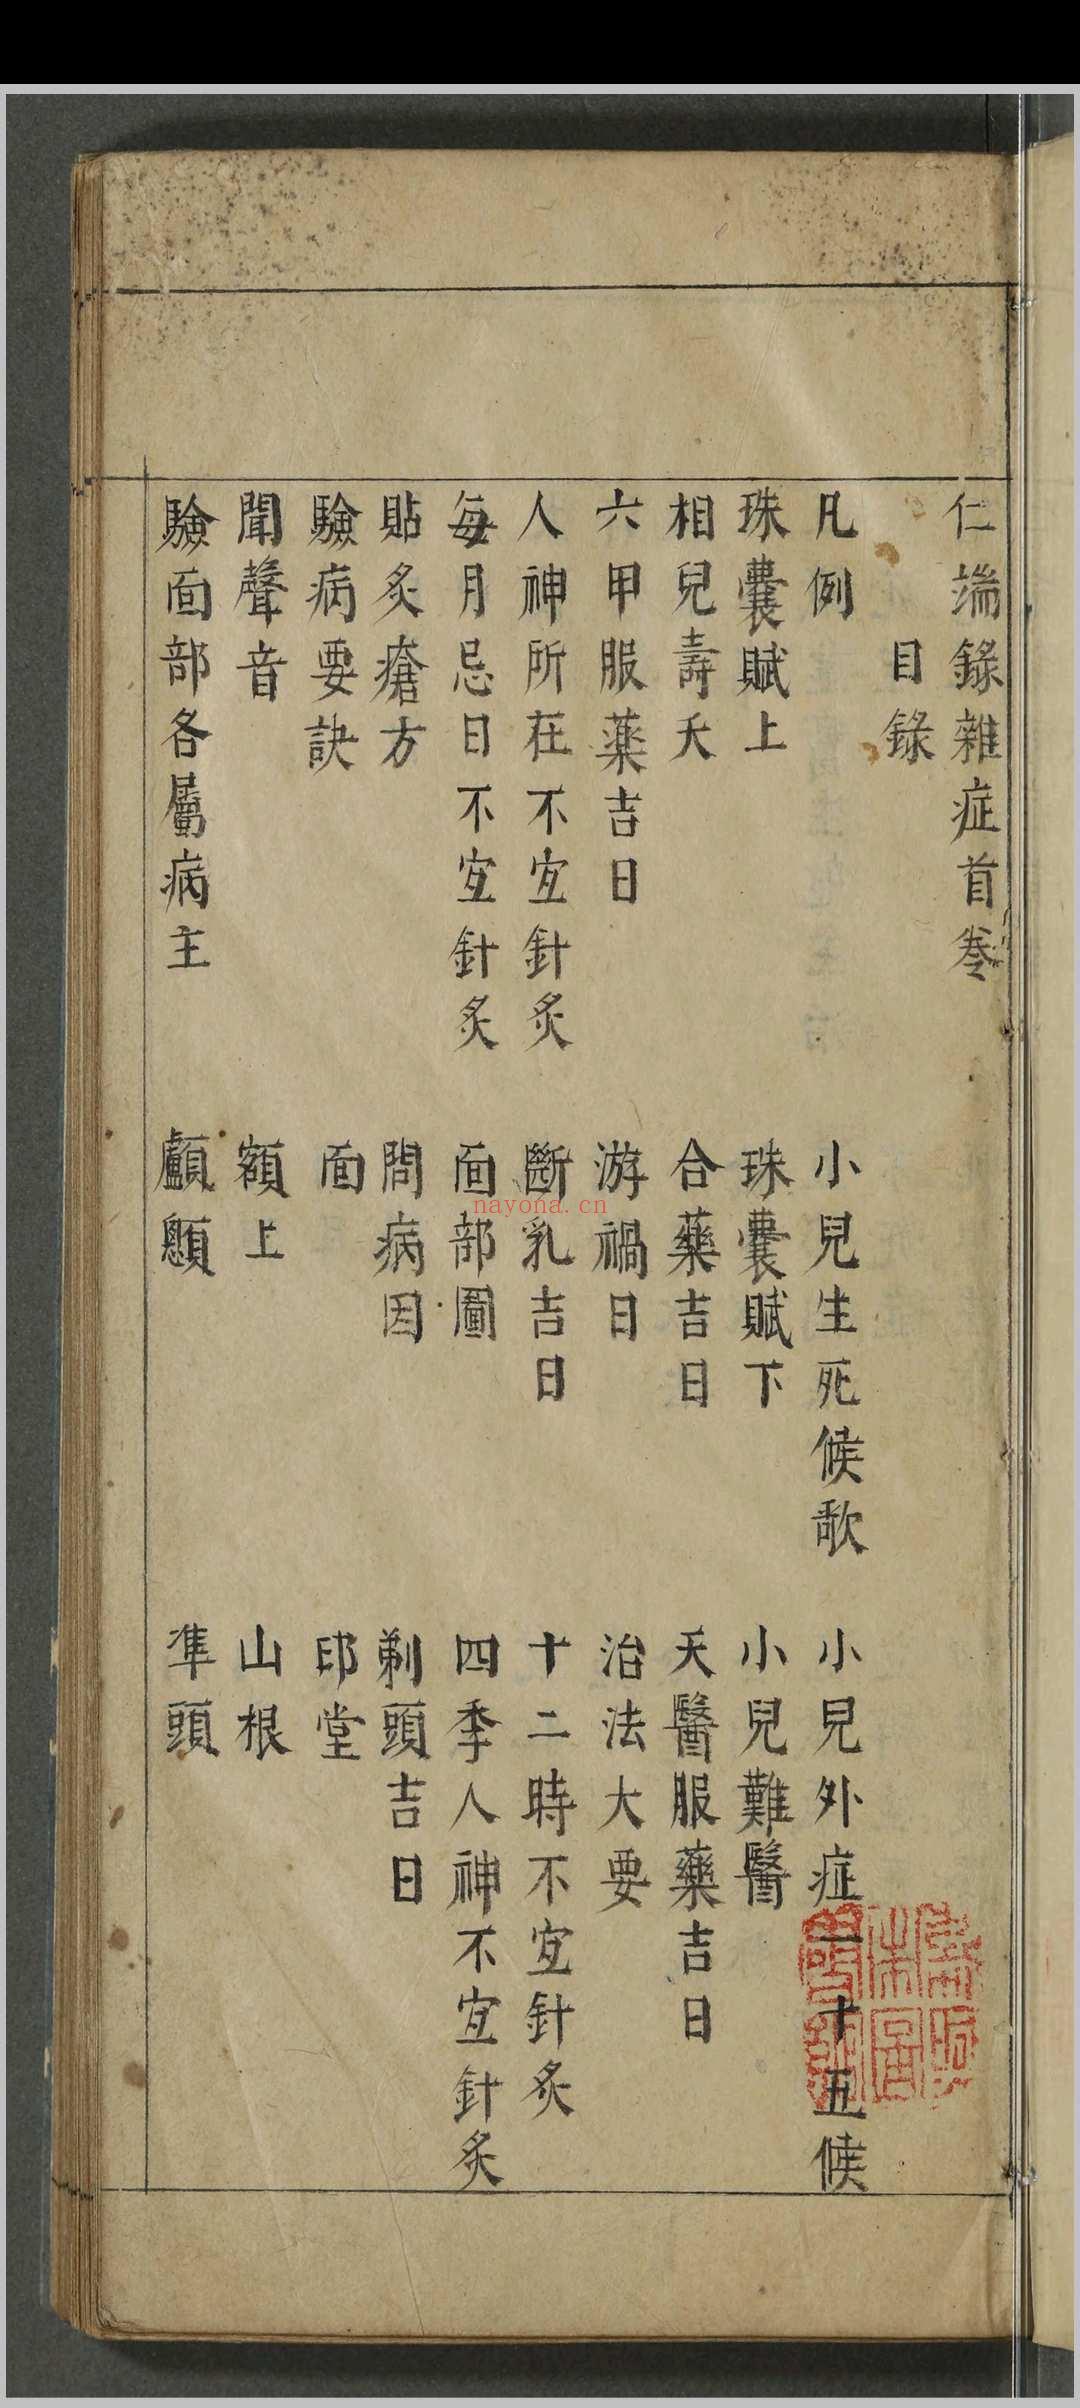 仁端錄雜症首卷
目錄
凡例 小兒生死候歌 小兒外症一十五候
珠囊賦上 珠囊賦下 小兒難醫
相兒壽夭 合藥吉日 天醫服藥吉日
六甲服藥吉日 游禍日 治法大要
人神所在不宜針炙 斷乳吉日 十二時不宜針炙
每月忌日不宜針炙 面部圖 四季人神不宜針炙
貼炙瘡方 問病因 剃頭吉日
驗病要訣 面 印堂
聞聲音 額上 山根
驗面部各屬病主 顱顖 準頭
nayona.cn